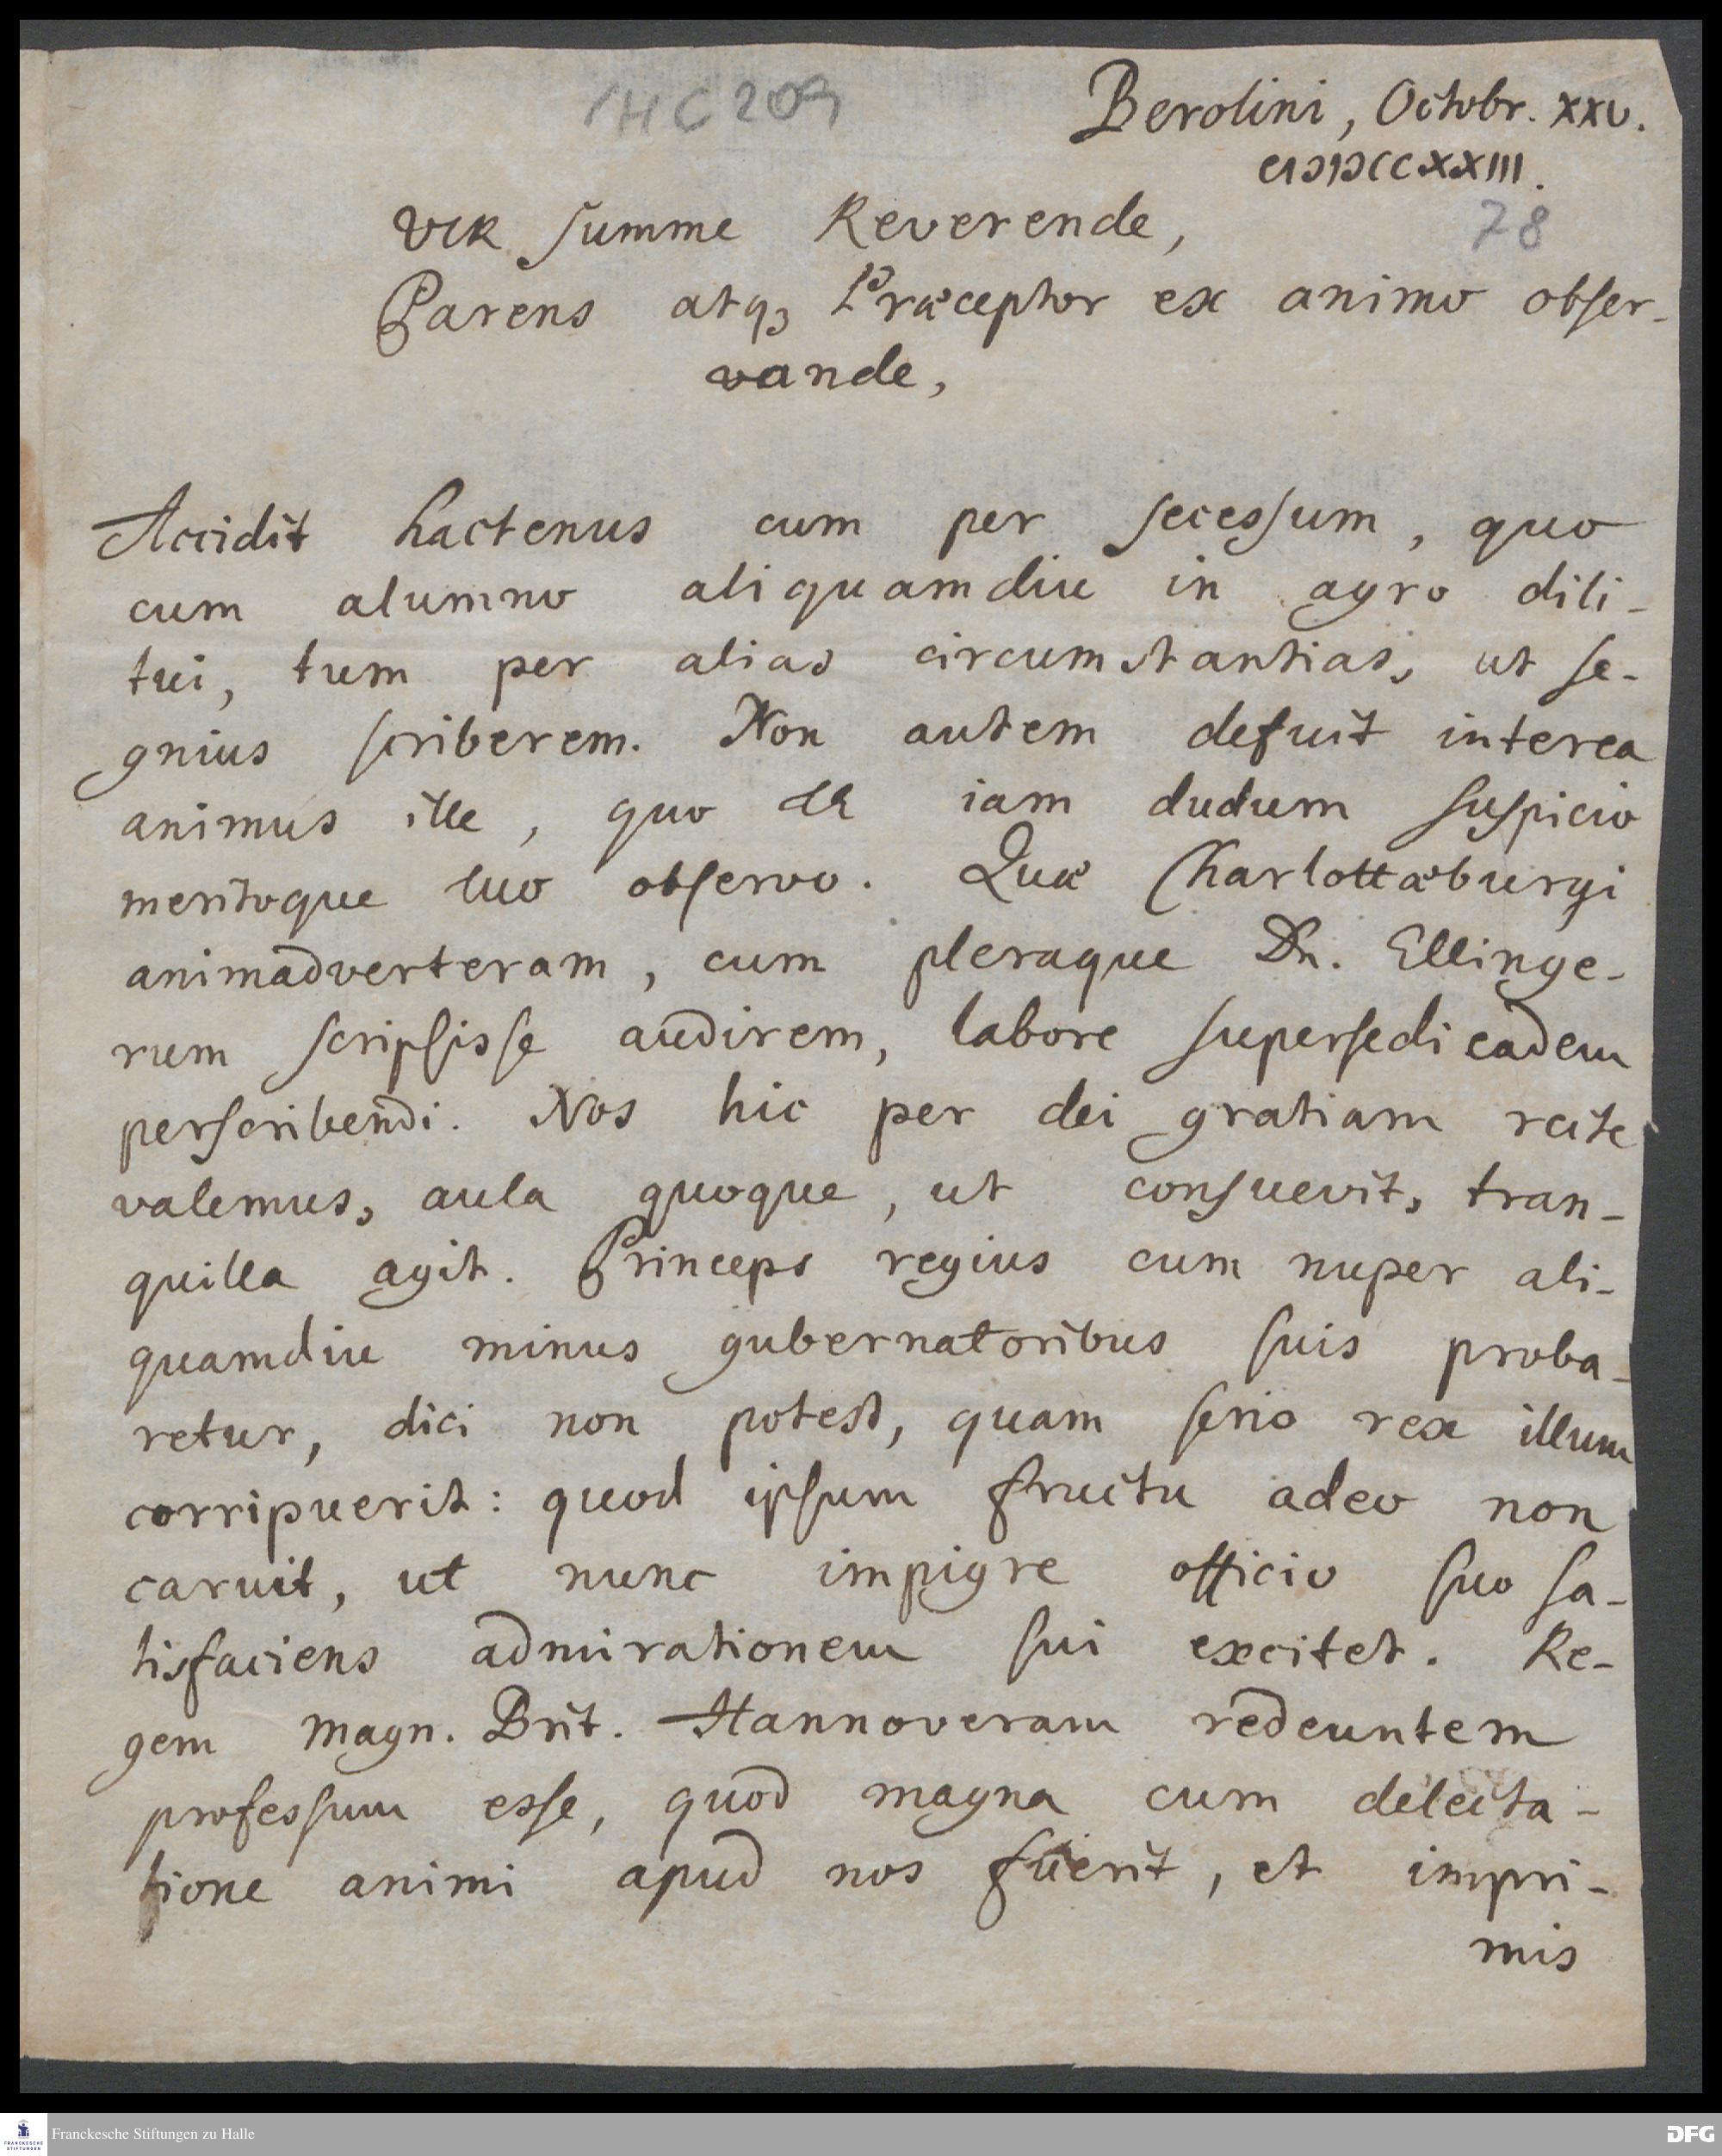 1HC209
Berolini, Octobr. xxv.
CIↃIↃCCXXIII.
78
VIR summe Reverende,
Parens atqꝫ Præceptor ex animo obser-
vande,
Accidit hactenus cum per secessum, quo
cum alumno aliquamdiu in agro diti-
tui, tum per alias circumstantias, ut se-
gnius scriberem. Non autem defuit interea
animus ille, quo TE iam dudum suspicio
meritoque tuo observo. Quæ Charlottæburgi
animadverteram, cum pleraque Dn. Ellinge-
rum scripsisse audirem, labore supersedi eadem
perscribendi. Nos hic per dei gratiam recte
valemus, aula quoque, ut consuevit, tran-
quilla agit. Princeps regius cum nuper ali-
quamdiu minus gubernatoribus suis proba-
retur, dici non potest, quam serio rex illum
corripuerit: quod ipsum fructu adeo non
caruit, ut nunc impigre officio suo sa-
tisfaciens admirationem sui excitet. Re-
gem Magn. Brit. Hannoveram redeuntem
professum esse, quod magna cum delecta-
tione animi apud nos fuerit, et impri-
mis
Franckesche Stiftungen zu Halle
DFG